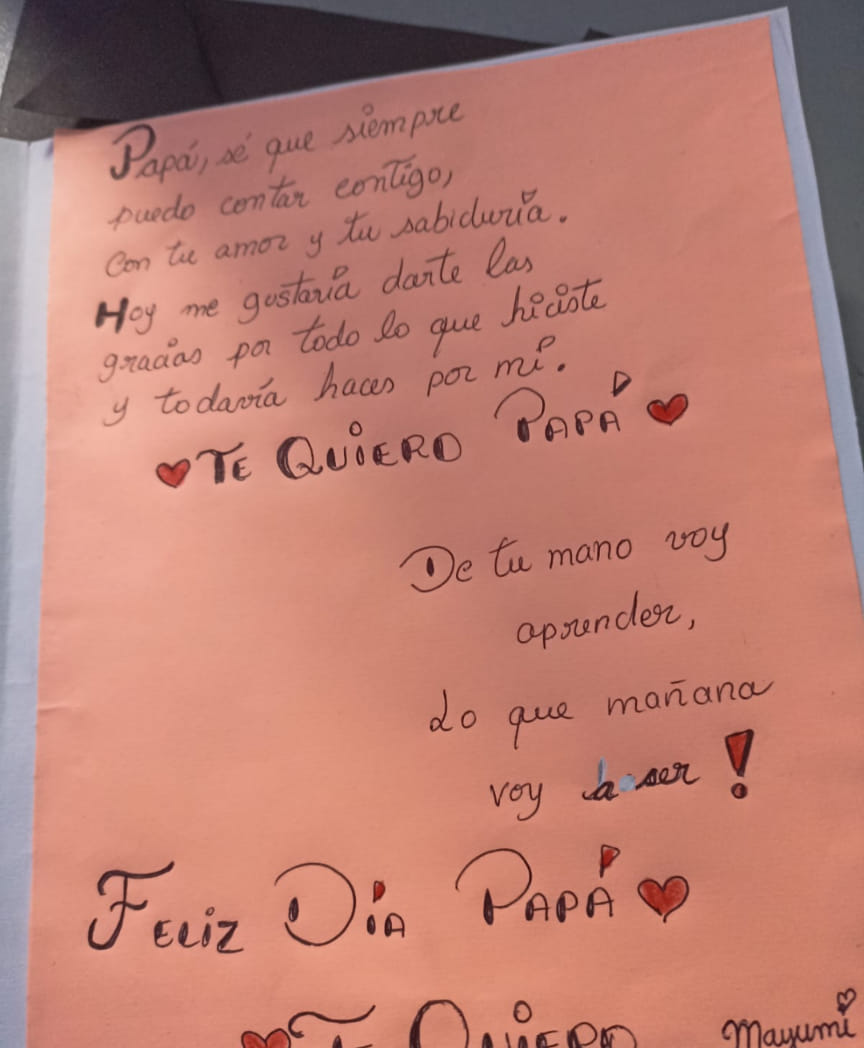 Papá, sé que siempre
puedo contar contigo,
con tu amor y tu sabiduría.
Hoy me gustaría darte las
gracias por todo lo que hiciste
y todavía haces por mí.
TE QUIERO PAPÁ
De tu mano voy
aprender,
Lo que mañana
voy a ser!
FELIZ DÍA PAPÁ
TE QUIERO Mayumi